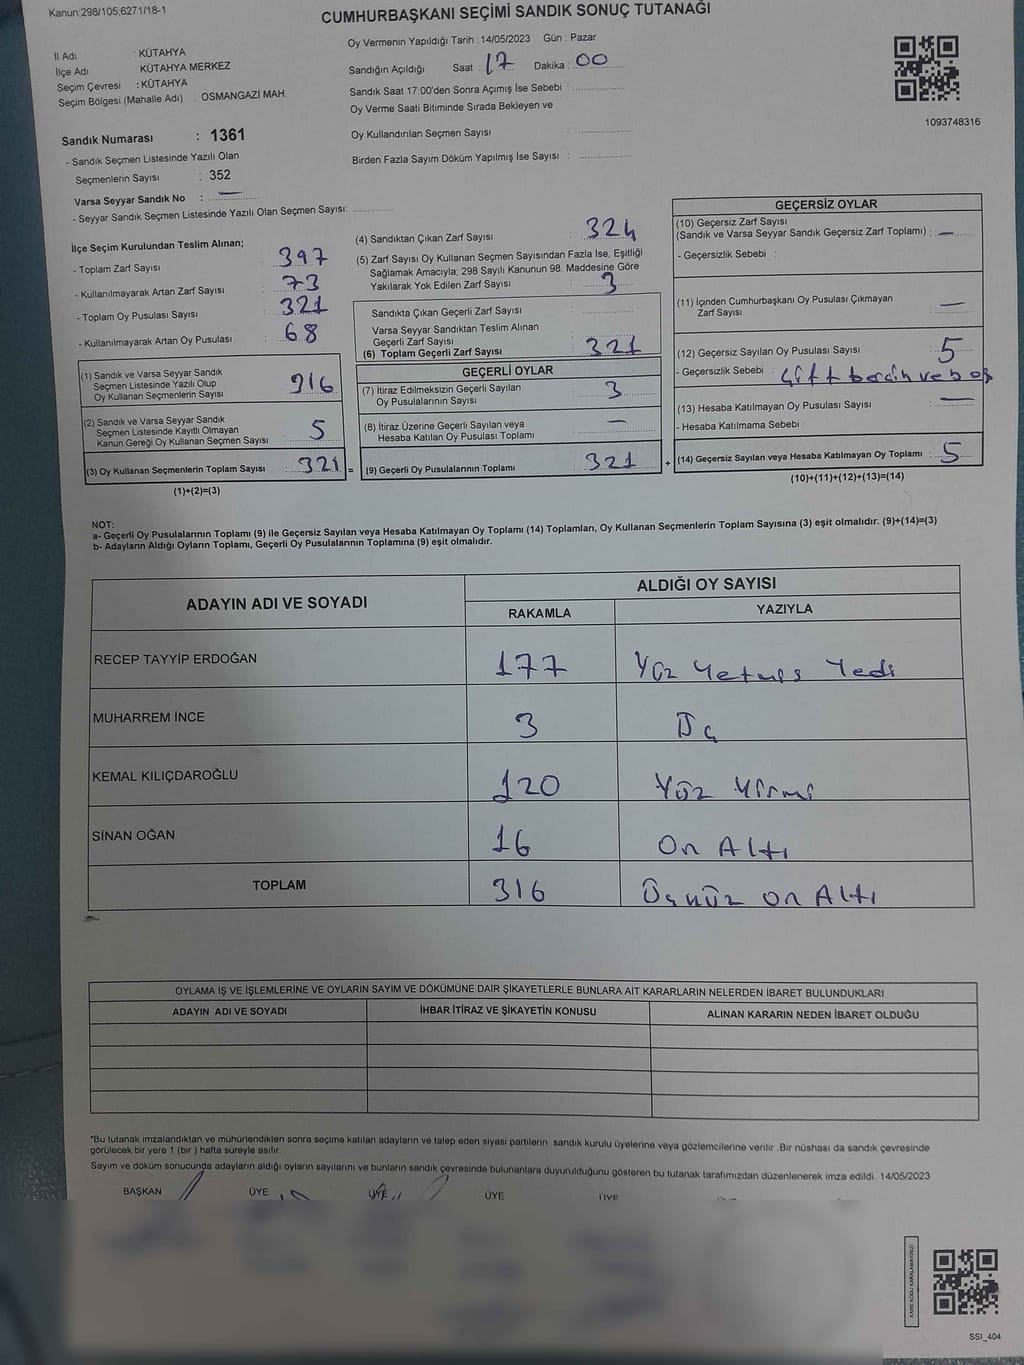 Kanun:298/105,6271/18-1
CUMHURBAŞKANI SEÇİMİ SANDIK SONUÇ TUTANAĞI
İl Adı : KÜTAHYA
İlçe Adı KÜTAHYA MERKEZ
Seçim Çevresi : KÜTAHYA
Seçim Bölgesi (Mahalle Adı) : OSMANGAZİ MAH.
Sandık Numarası : 1361
- Sandık Seçmen Listesinde Yazılı Olan
Seçmenlerin Sayısı : 352
Varsa Seyyar Sandık No : —
- Seyyar Sandık Seçmen Listesinde Yazılı Olan Seçmen Sayısı: ..............
Oy Vermenin Yapıldığı Tarih :14/05/2023 Gün : Pazar
Sandığın Açıldığı Saat : 17 Dakika : 00
Sandık Saat 17:00'den Sonra Açımış İse Sebebi : ..............
Oy Verme Saati Bitiminde Sırada Bekleyen ve
Oy Kullandırılan Seçmen Sayısı : ..............
Birden Fazla Sayım Döküm Yapılmış İse Sayısı : ..............
1093748316
İlçe Seçim Kurulundan Teslim Alınan;
- Toplam Zarf Sayısı : 397
- Kullanılmayarak Artan Zarf Sayısı : 73
- Toplam Oy Pusulası Sayısı : 321
- Kullanılmayarak Artan Oy Pusulası : 68
(1) Sandık ve Varsa Seyyar Sandık
Seçmen Listesinde Yazılı Olup
Oy Kullanan Seçmenlerin Sayısı : 916
(2) Sandık ve Varsa Seyyar Sandık
Seçmen Listesinde Kayıtlı Olmayan
Kanun Gereği Oy Kullanan Seçmen Sayısı : 5
(3) Oy Kullanan Seçmenlerin Toplam Sayısı : 321 =
(1)+(2)=(3)
(4) Sandıktan Çıkan Zarf Sayısı : 324
(5) Zarf Sayısı Oy Kullanan Seçmen Sayısından Fazla İse, Eşitliği
Sağlamak Amacıyla; 298 Sayılı Kanunun 98. Maddesine Göre
Yakılarak Yok Edilen Zarf Sayısı : 3
Sandıkta Çıkan Geçerli Zarf Sayısı : ..............
Varsa Seyyar Sandıktan Teslim Alınan
Geçerli Zarf Sayısı : ..............
(6) Toplam Geçerli Zarf Sayısı : 321
GEÇERLİ OYLAR
(7) İtiraz Edilmeksizin Geçerli Sayılan
Oy Pusulalarının Sayısı : 3
(8) İtiraz Üzerine Geçerli Sayılan veya
Hesaba Katılan Oy Pusulası Toplamı : —
(9) Geçerli Oy Pusulalarının Toplamı : 321 +
GEÇERSİZ OYLAR
(10) Geçersiz Zarf Sayısı
(Sandık ve Varsa Seyyar Sandık Geçersiz Zarf Toplamı) : —
- Geçersizlik Sebebi :
(11) İçinden Cumhurbaşkanı Oy Pusulası Çıkmayan
Zarf Sayısı : —
(12) Geçersiz Sayılan Oy Pusulası Sayısı : 5
- Geçersizlik Sebebi : çift bascin ve boş
(13) Hesaba Katılmayan Oy Pusulası Sayısı : —
- Hesaba Katılmama Sebebi :
(14) Geçersiz Sayılan veya Hesaba Katılmayan Oy Toplamı : 5
(10)+(11)+(12)+(13)=(14)
NOT:
a- Geçerli Oy Pusulalarının Toplamı (9) ile Geçersiz Sayılan veya Hesaba Katılmayan Oy Toplamı (14) Toplamları, Oy Kullanan Seçmenlerin Toplam Sayısına (3) eşit olmalıdır. (9)+(14)=(3)
b- Adayların Aldığı Oyların Toplamı, Geçerli Oy Pusulalarının Toplamına (9) eşit olmalıdır.
ADAYIN ADI VE SOYADI ALDIĞI OY SAYISI
RAKAMLA YAZIYLA
RECEP TAYYİP ERDOĞAN 177 Yüz Yetmiş Yedi
MUHARREM İNCE 3 Üç
KEMAL KILIÇDAROĞLU 120 Yüz Yirmi
SİNAN OĞAN 16 On Altı
TOPLAM 316 Üçyüz on Altı
OYLAMA İŞ VE İŞLEMLERİNE VE OYLARIN SAYIM VE DÖKÜMÜNE DAİR ŞİKAYETLERLE BUNLARA AİT KARARLARIN NELERDEN İBARET BULUNDUKLARI
ADAYIN ADI VE SOYADI İHBAR İTİRAZ VE ŞİKAYETİN KONUSU ALINAN KARARIN NEDEN İBARET OLDUĞU
*Bu tutanak imzalandıktan ve mühürlendikten sonra seçime katılan adayların ve talep eden siyasi partilerin sandık kurulu üyelerine veya gözlemcilerine verilir .Bir nüshası da sandık çevresinde
görülecek bir yere 1 (bir ) hafta süreyle asılır.
Sayım ve döküm sonucunda adayların aldığı oyların sayılarını ve bunların sandık çevresinde bulunanlara duyurulduğunu gösteren bu tutanak tarafımızdan düzenlenerek imza edildi. 14/05/2023
BAŞKAN ÜYE ÜYE ÜYE ÜYE
KARE KODU KARALAMAYINIZ!
SSI_404